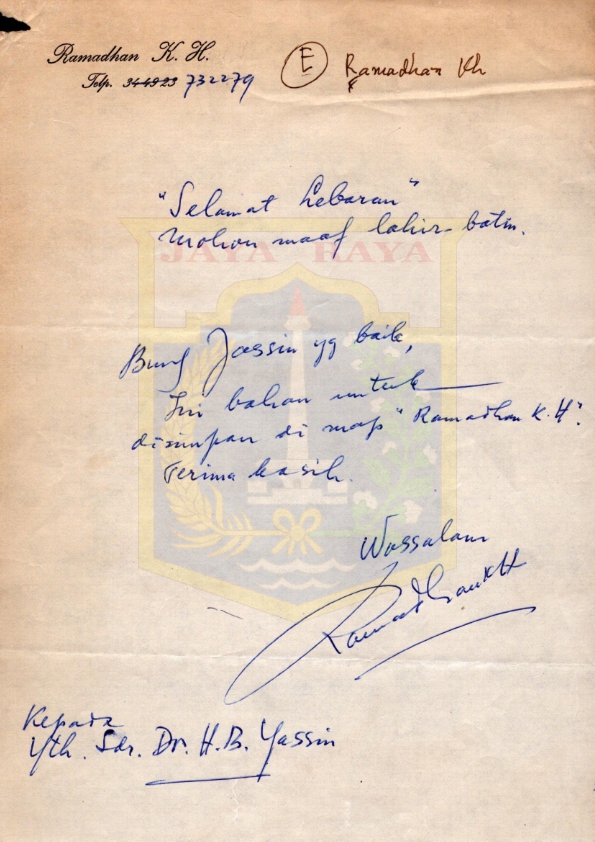 Ramadhan K. H.
Telp. 344923 732279
E Ramadhan Kh
"Selamat Lebaran"
Mohon maaf lahir-batin.
JAYA RAYA
Bung Jassin yg baik,
Ini bahan untuk
disimpan di map "Ramadhan K.H".
Terima kasih.
Wassalam
RamadhanKH
Kepada
Yth. Sdr. Dr. H.B. Yassin